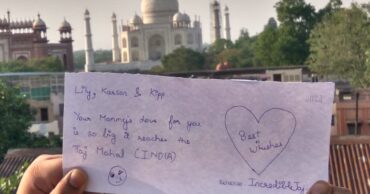 Lily, Kasson & Kipp
Your Mommy's love for you
is so big it reaches the
Taj Mahal (INDIA)
Best
wishes
IncredibleJoy